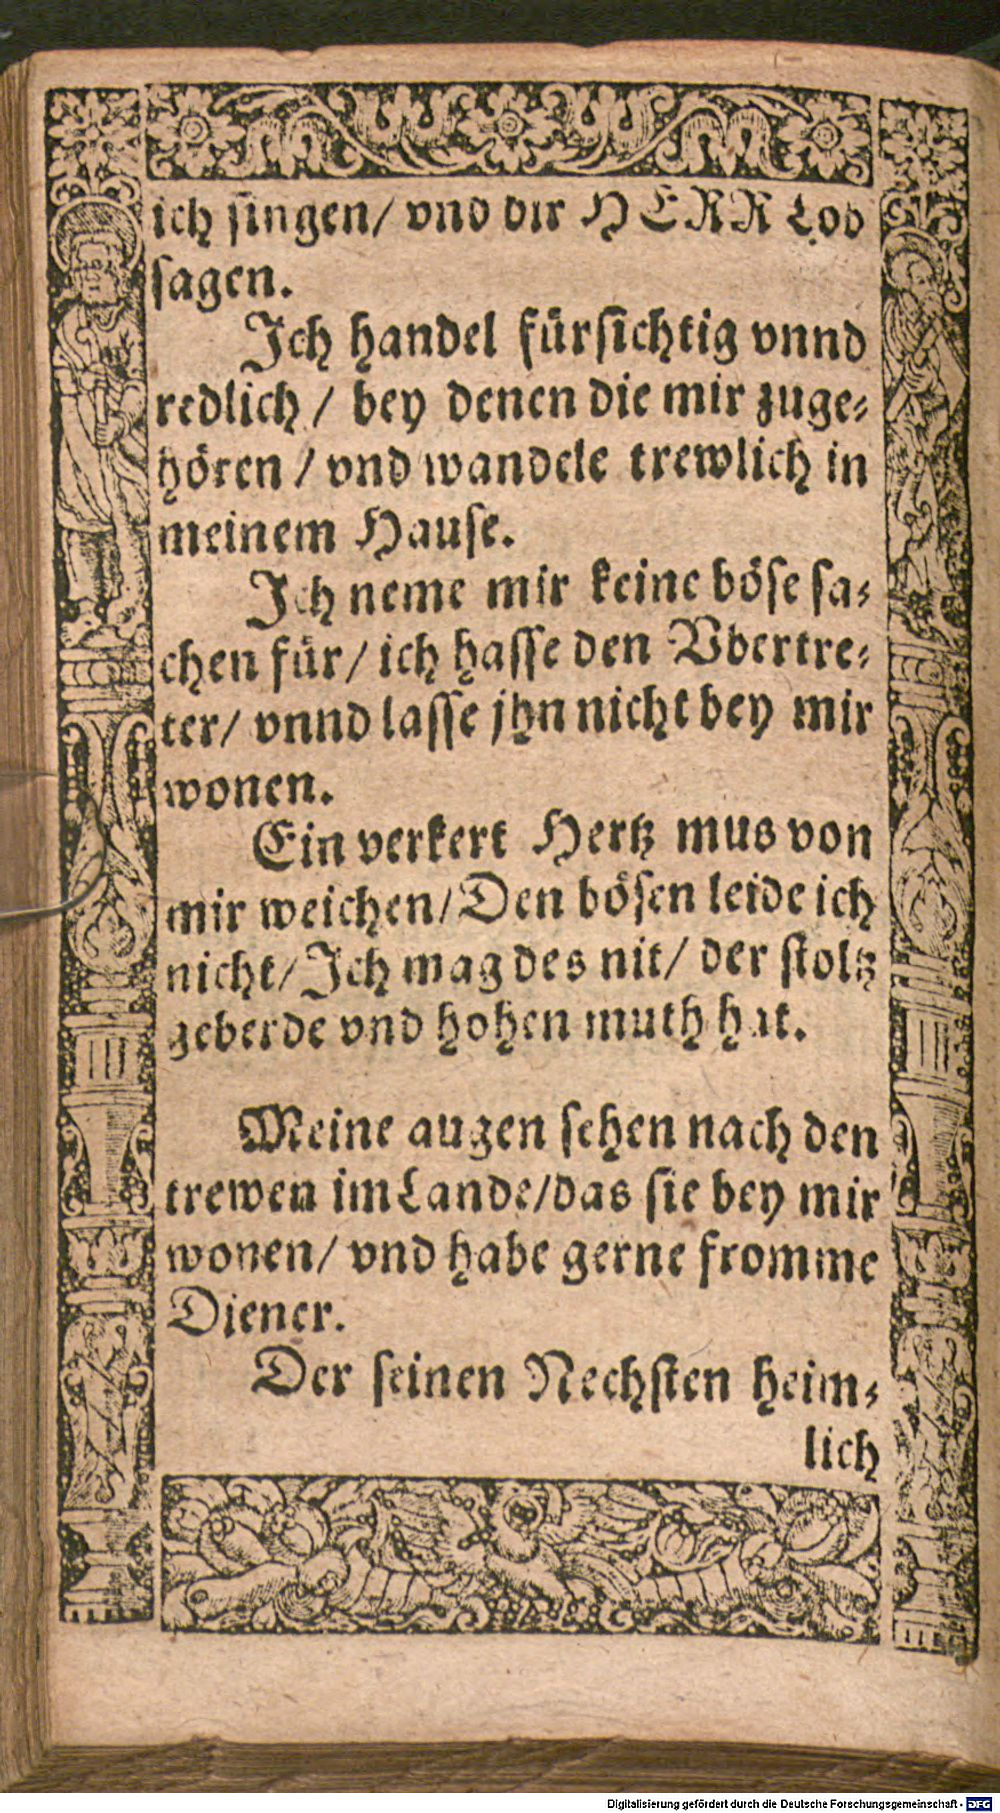 ich ſingen/ vnd dir HERR Lob
ſagen.
Ich handel fürſichtig vnnd
redlich / bey denen die mir zuge⸗
hören / vnd wandele trewlich in
meinem Hauſe.
Ich neme mir keine böſe ſa⸗
chen für/ ich haſſe den Vbertre⸗
ter/ vnnd laſſe jhn nicht bey mir
wonen.
Ein verkert Hertz mus von
mir weichen/Den böſen leide ich
nicht/Ich mag des nit/ der ſtoltz
geberde vnd hohen muth hat.
Meine augen ſehen nach den
trewen im Lande/das ſie bey mir
wonen/ vnd habe gerne fromme
Diener.
Der ſeinen Nechſten heim⸗
lich
Digitalisierung gefördert durch die Deutsche Forschungsgemeinschaft - DFG